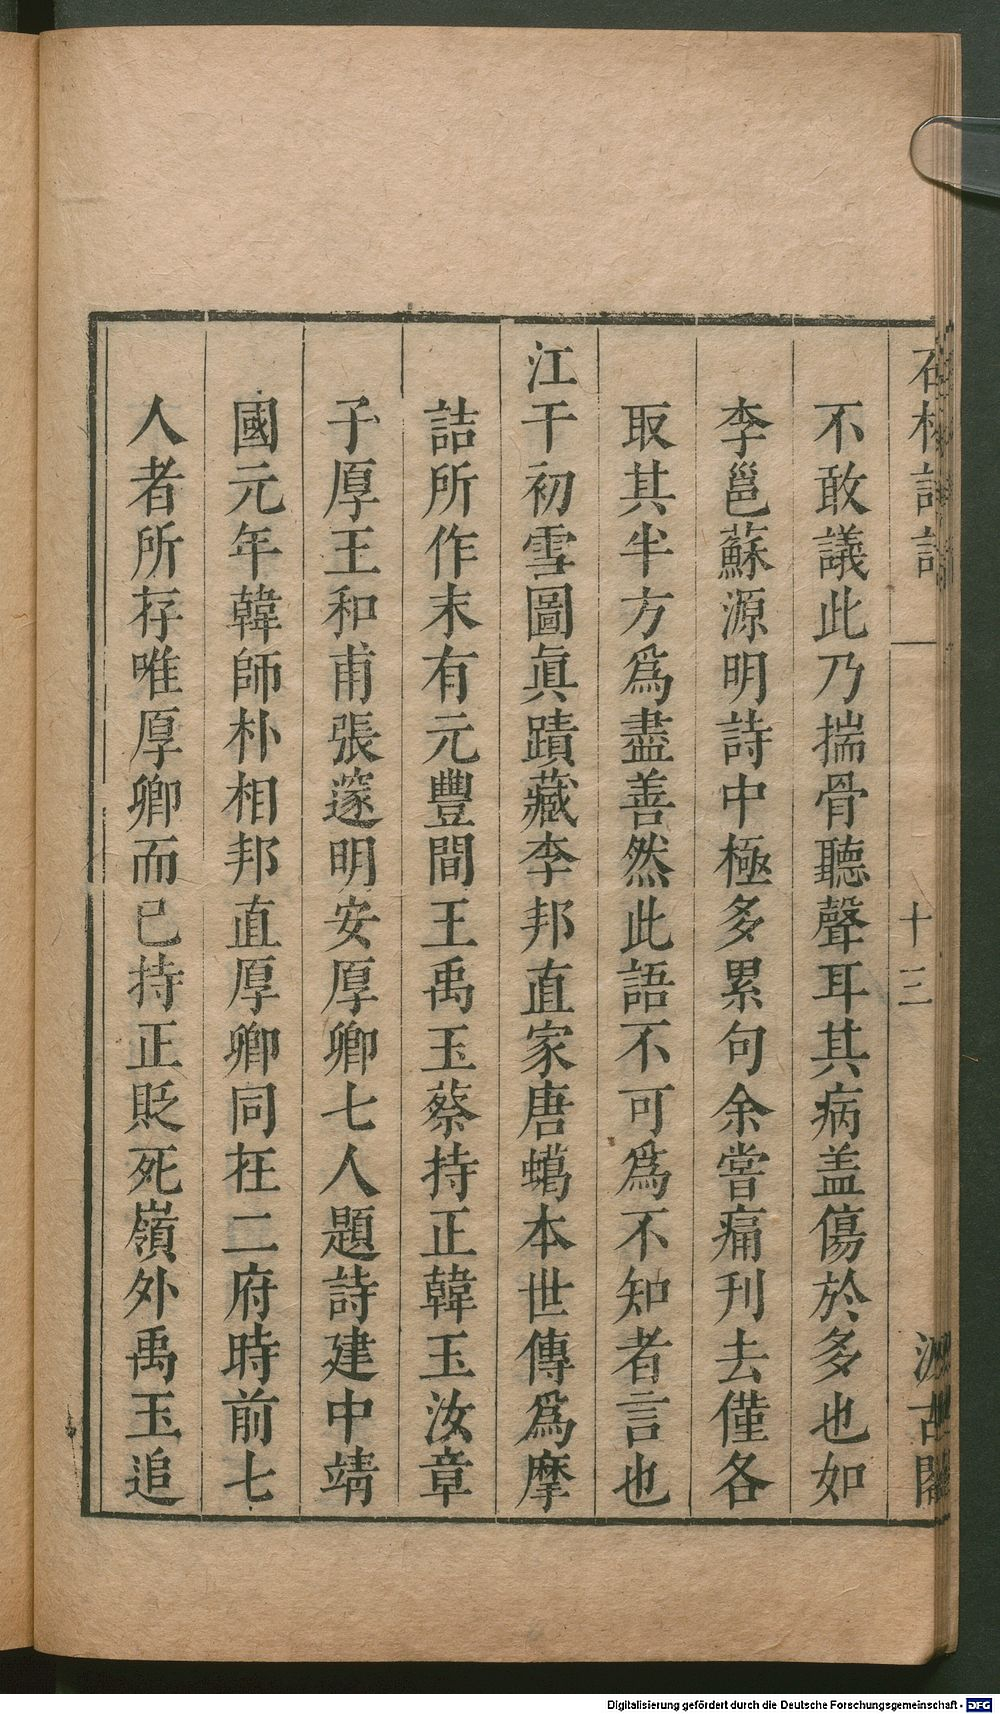 石林詩話 一 十三 汲古閣
不敢議此乃揣骨聽聲耳其病盖傷於多也如
李邕蘇源明詩中極多累句余嘗痛刊去僅各
取其半方爲盡善然此語不可爲不知者言也
江干初雪圖眞蹟藏李邦直家唐蠟本世傳爲摩
詰所作末有元豐間王禹玉蔡持正韓玉汝章
子厚王和甫張邃明安厚卿七人題詩建中靖
國元年韓師朴相邦直厚卿同在二府時前七
人者所存唯厚卿而已持正貶死嶺外禹玉追
Digitalisierung gefördert durch die Deutsche Forschungsgemeinschaft - DFG